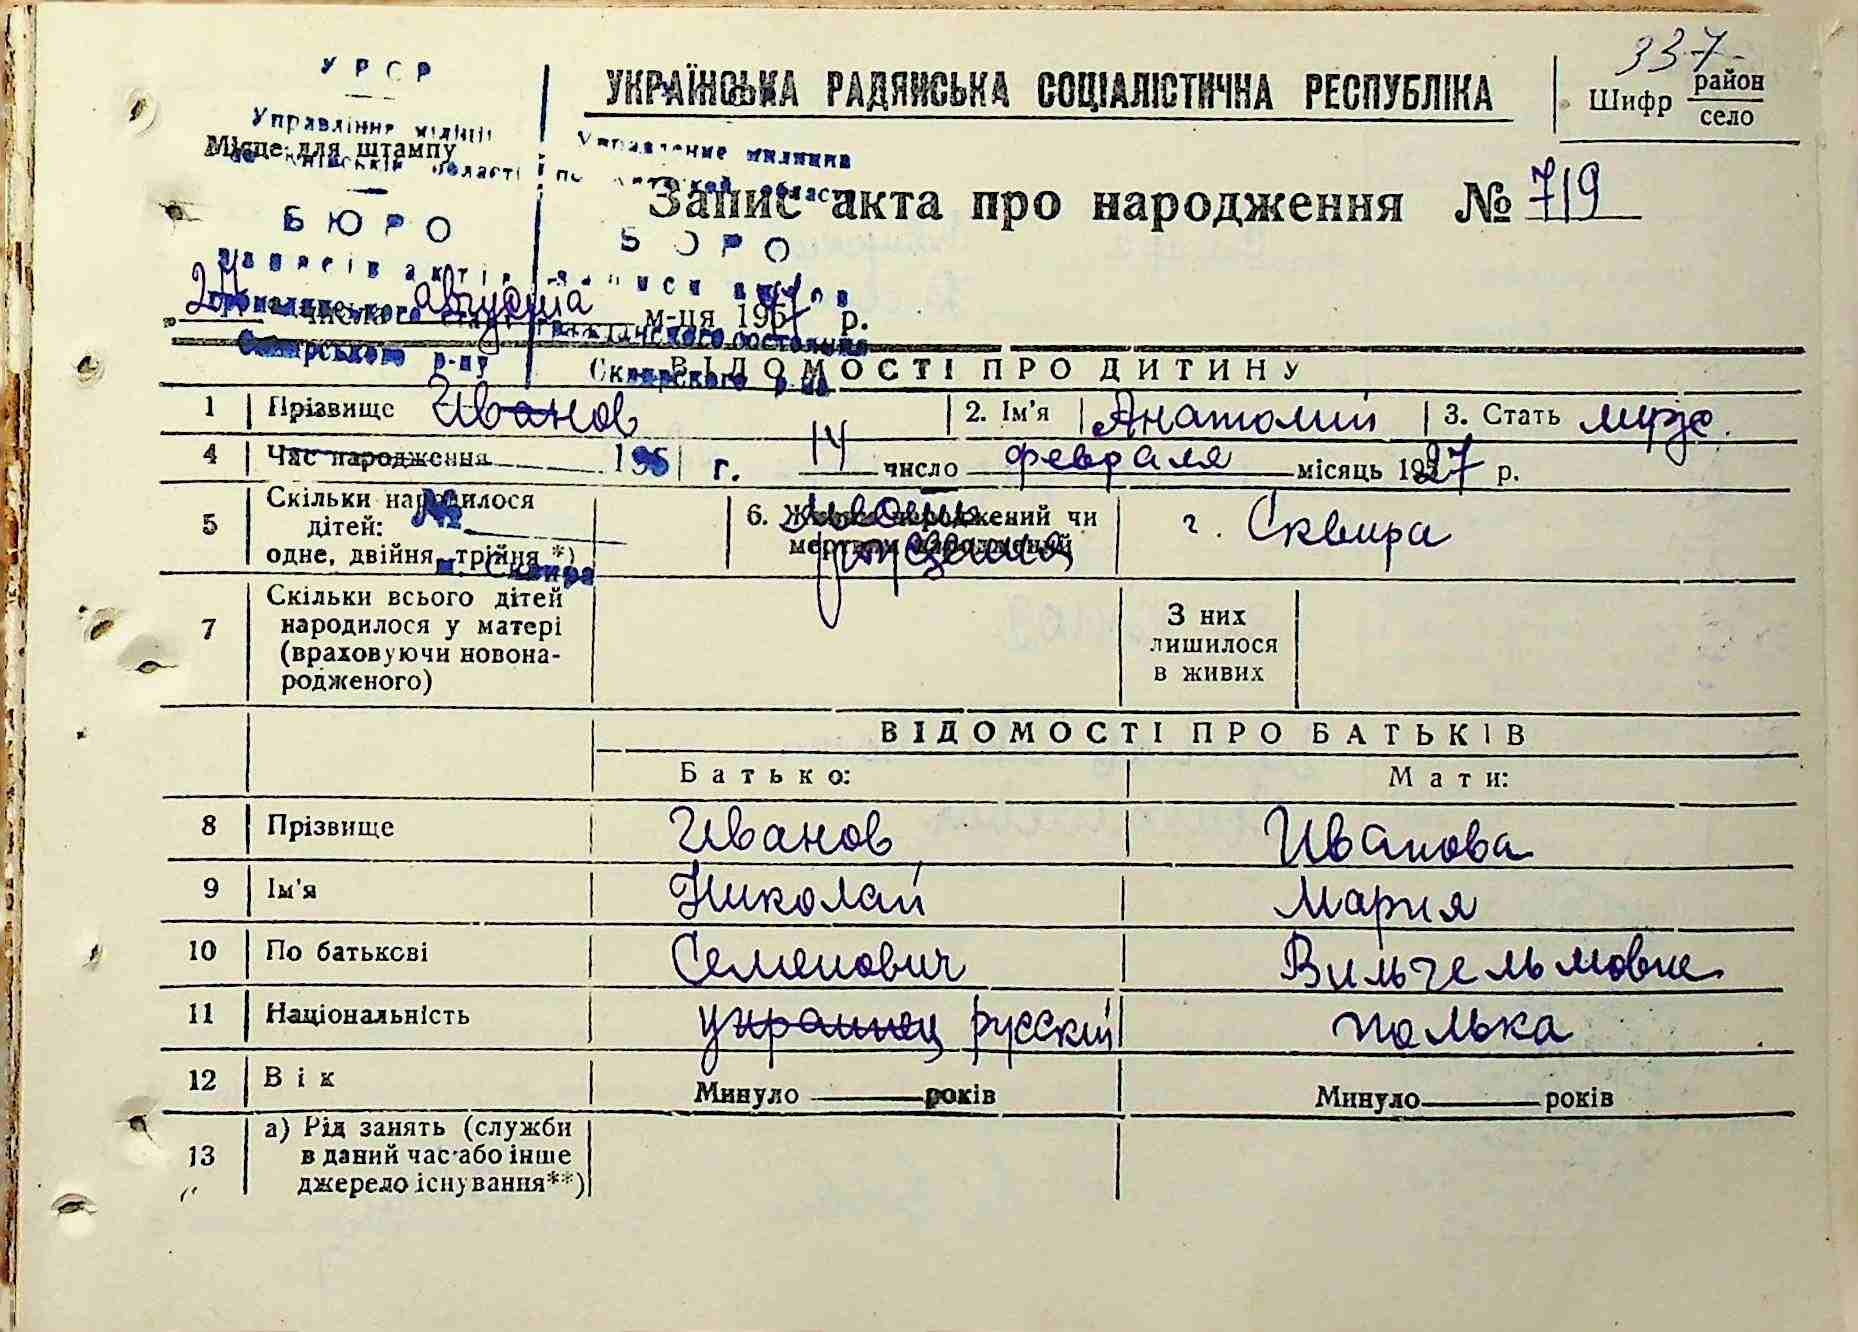 337
УКРАЇНСЬКА РАДЯНСЬКА СОЦІАЛІСТИЧНА РЕСПУБЛІКА
Шифр район
село
У Р С Р
Управління міліції
Управление милиции
Місце для штампу
області
Запис акта про народження № 719
Б Ю Р О
Б Ю Р О
27 числа августа м-ця 195 р.
Сквирського р-ну
Сквирского р-на
ВІДОМОСТІ ПРО ДИТИНУ
1 Прізвище Иванов 2. Ім'я Анатолий 3. Стать мужс.
4 Час народження 14 число февраля місяць 1927 р.
5 Скільки народилося дітей: одне, двійня, трійня *)
№
м. Сквира
6. Живонароджений чи мертвонароджений
г. Сквира
7 Скільки всього дітей народилося у матері (враховуючи новонародженого)
З них лишилося в живих
ВІДОМОСТІ ПРО БАТЬКІВ
Батько: Мати:
8 Прізвище Иванов Иванова
9 Ім'я Николай Мария
10 По батькові Семенович Вильгельмовна
11 Національність украинец русский полька
12 Вік Минуло років Минуло років
13 а) Рід занять (служби в даний час або інше джерело існування**)